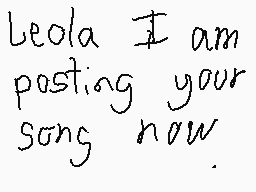 Leola I am
posting your
song now
.